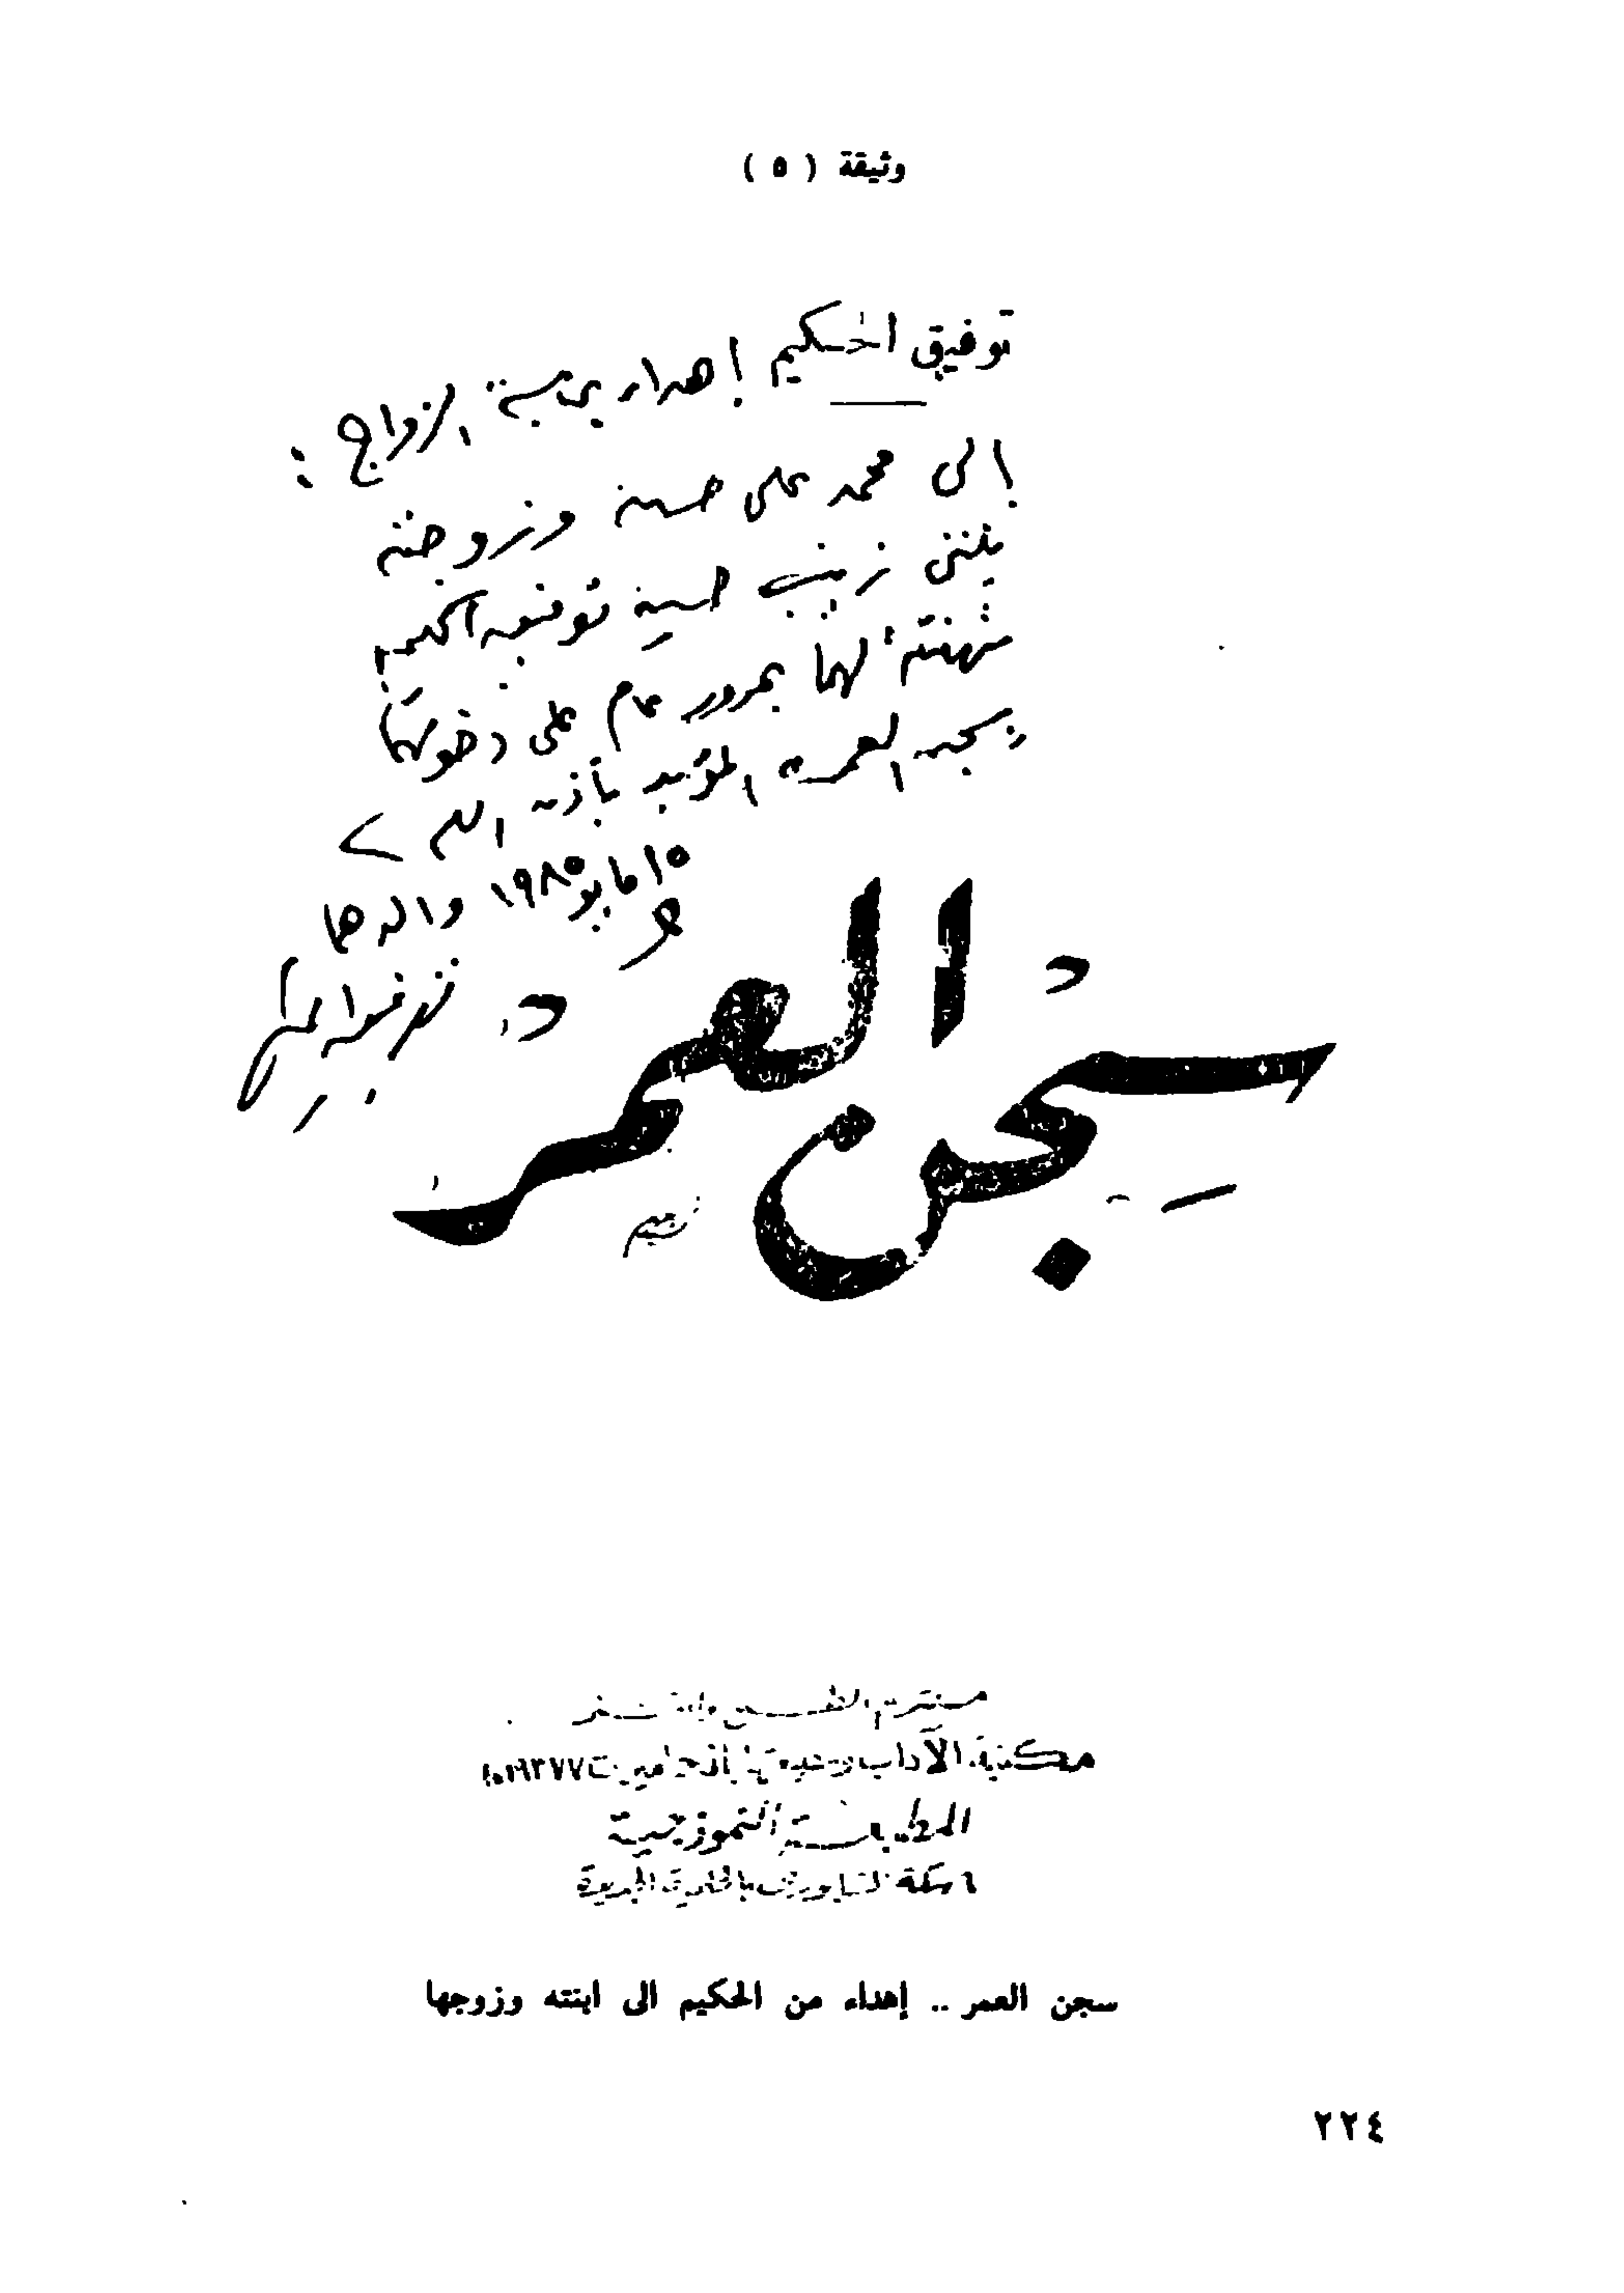 وثيقة ( ٥ )
توفيق الحكيم
إهداء بمناسبة الزواج :
إلى محمد على حسين وزوجته
بنتى زينب حسين توفيق الحكيم
تهنئة لهما بمرور عام على دخولهما
سجن العمر المؤبد بأذن الله
١٥ مايو ١٩٨٥
والدها
توفيق الحكيم
سجن العمر
ملتزم الطبع والنشر
مكتبة الآداب
المطبعة النموذجية
٦ سكة الشابورى بالحلمية الجديدة
سجن العمر .. إهداء من الحكيم الى ابنته وزوجها
٢٢٤